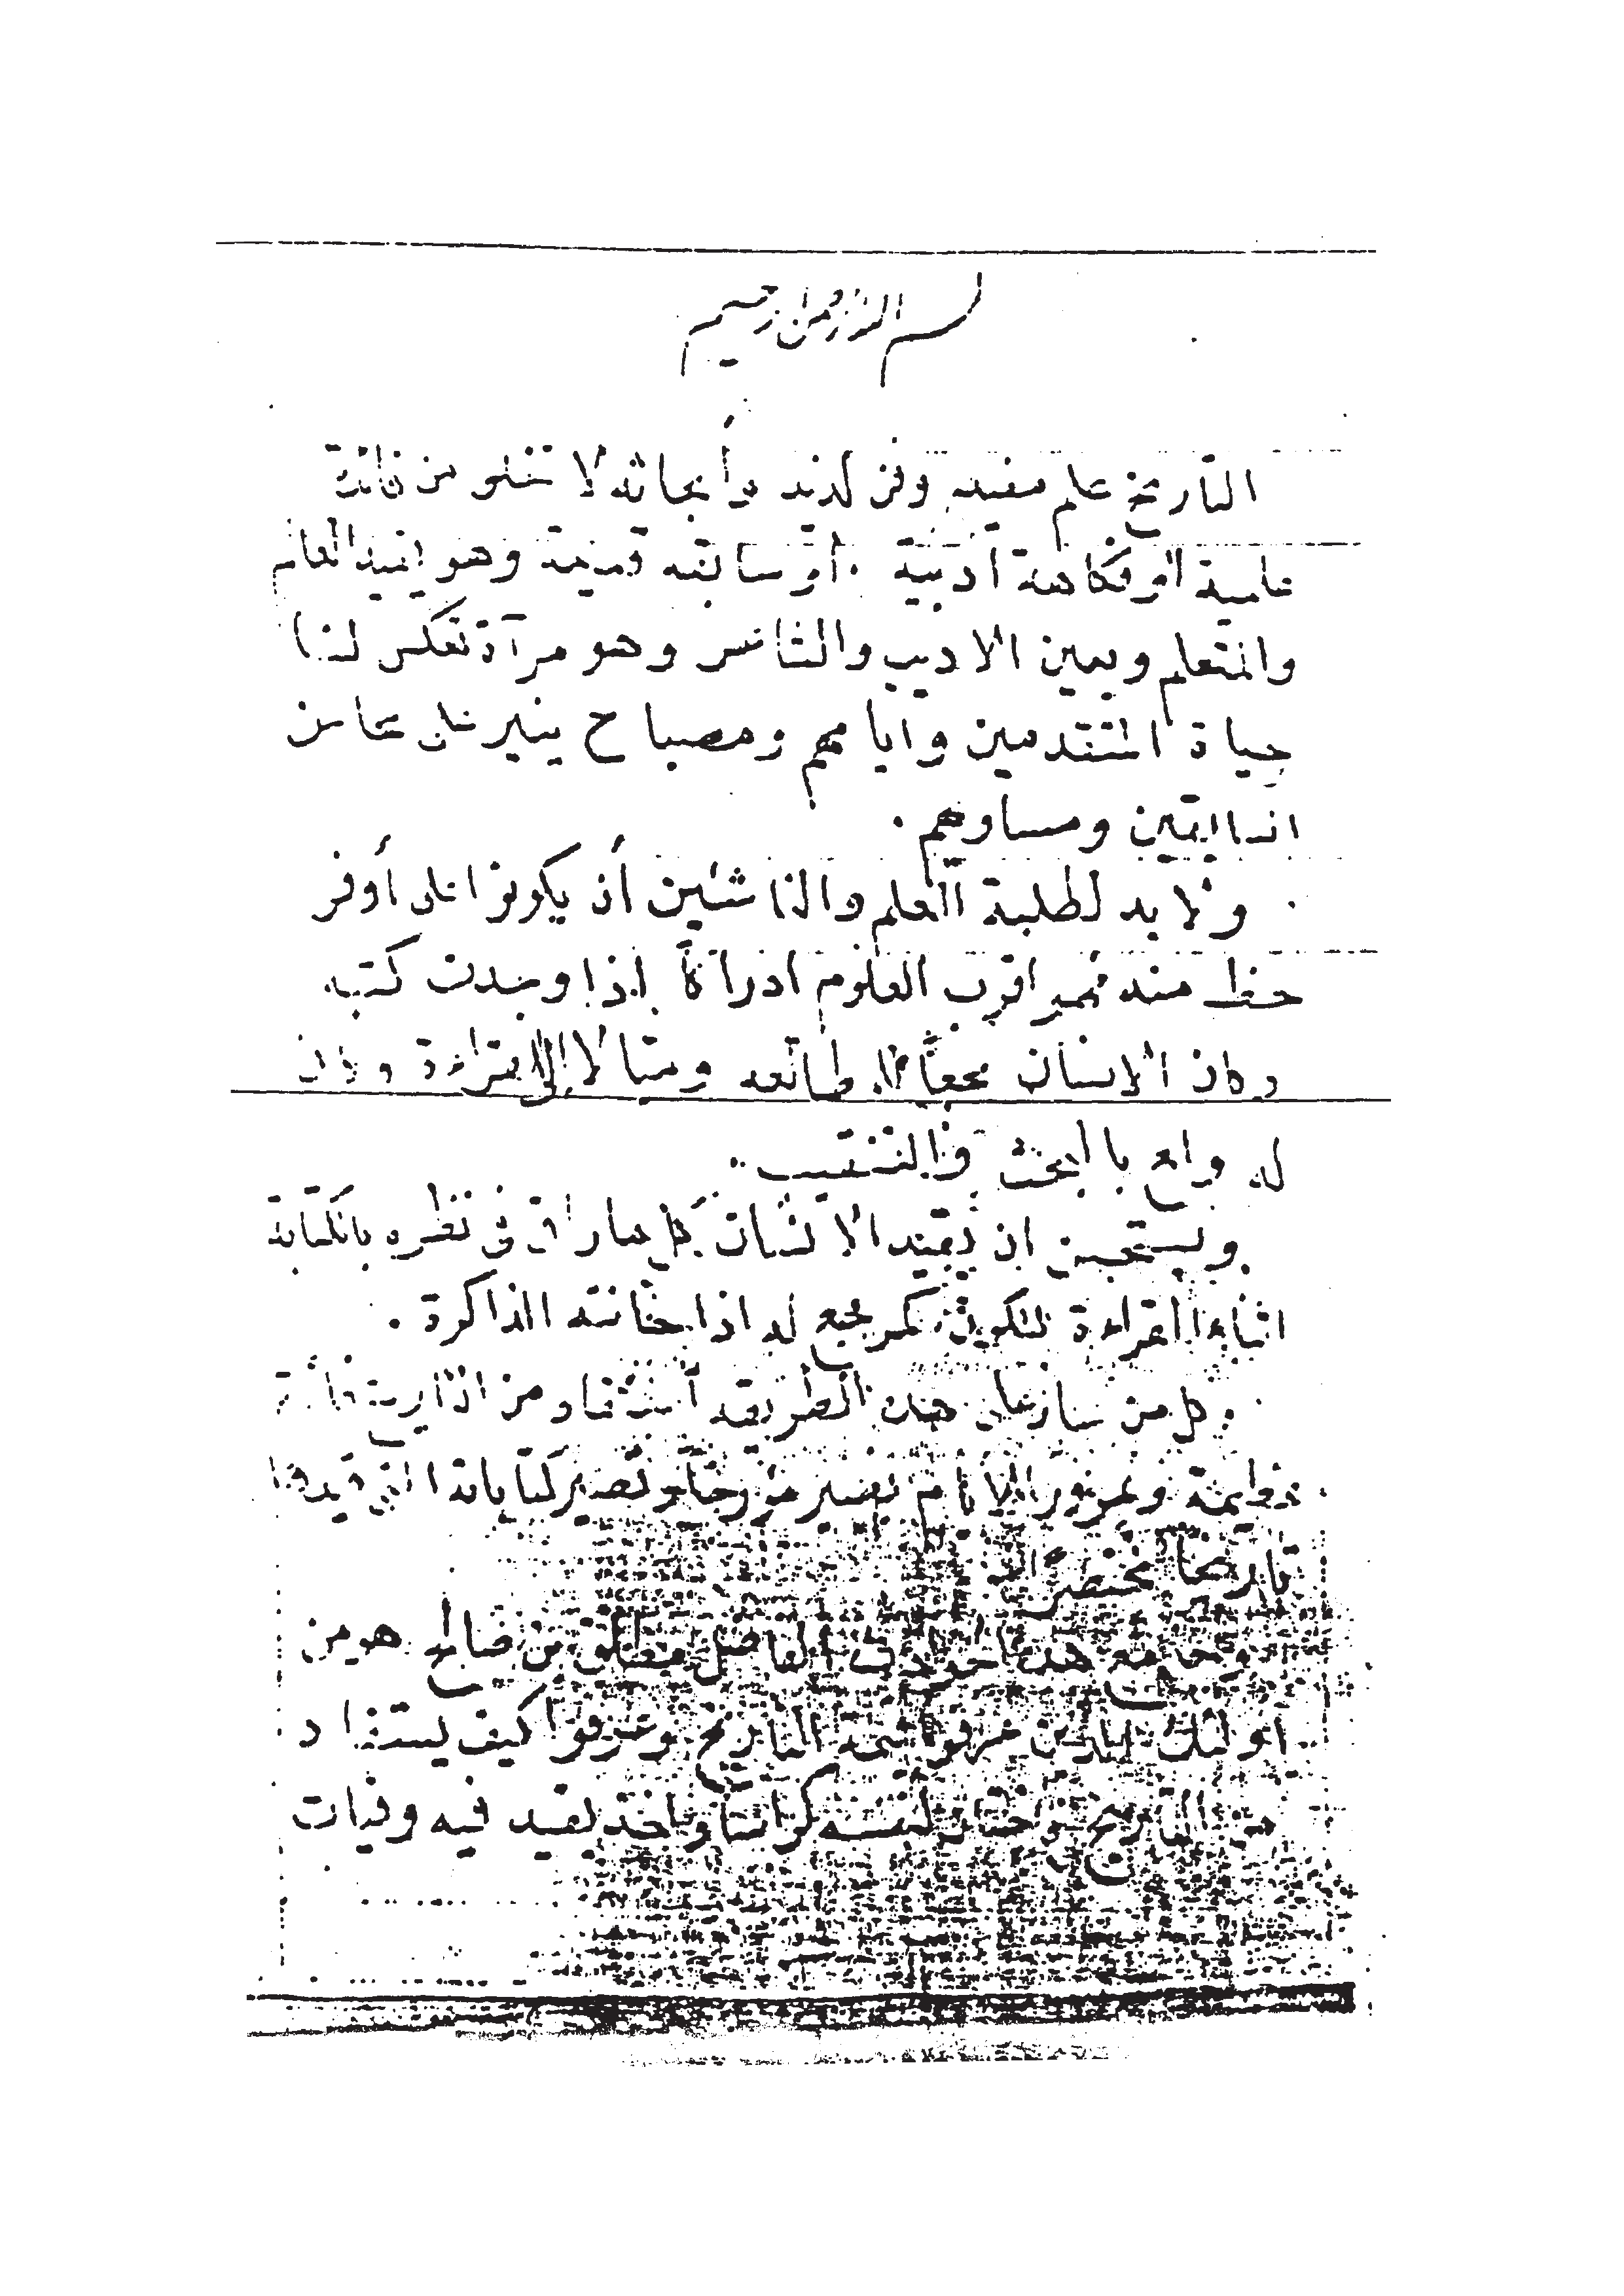 بسم الله الرحمن الرحيم
التاريخ علم مفيد وفن لذيذ وأبحاثه لا تخلو من فائدة
علمية أو فكاهة أدبية أو سابقة قديمة وهو يفيد العالم
والمتعلم ويعين الاديب والشاعر وهو مرآة تعكس لنا
حياة المتقدمين وايامهم ومصباح ينير على محاسن
السابقين ومساوئهم .
ولا بد لطلبة العلم والناشئين أن يكونوا على أوفر
حظ منه فهو اقرب العلوم ادراكاً اذا وجدت كتبه
وكان الانسان محباً للمطالعه وميالا الى القراءة وكان
له ولع بالبحث والتنقيب .
ويستحسن ان يقيد الانسان كل ما راق في نظره بالكتابة
اثناء القراءة لتكون كمرجع له اذا خانته الذاكرة .
وكل من سار على هذه الطريقه استفاد من التاريخ فائدة
عظيمة وبمرور الايام يصير مؤرخاً وتصير كتاباته التي قيدها
تاريخاً مختصراً
وجامع هذه الفاضل من صالح هو من
أولئك الذين عرفوا التاريخ وعرفوا كيف يستفاد
من التاريخ لنفسه كراسا وأخذ يقيد فيه وفيات